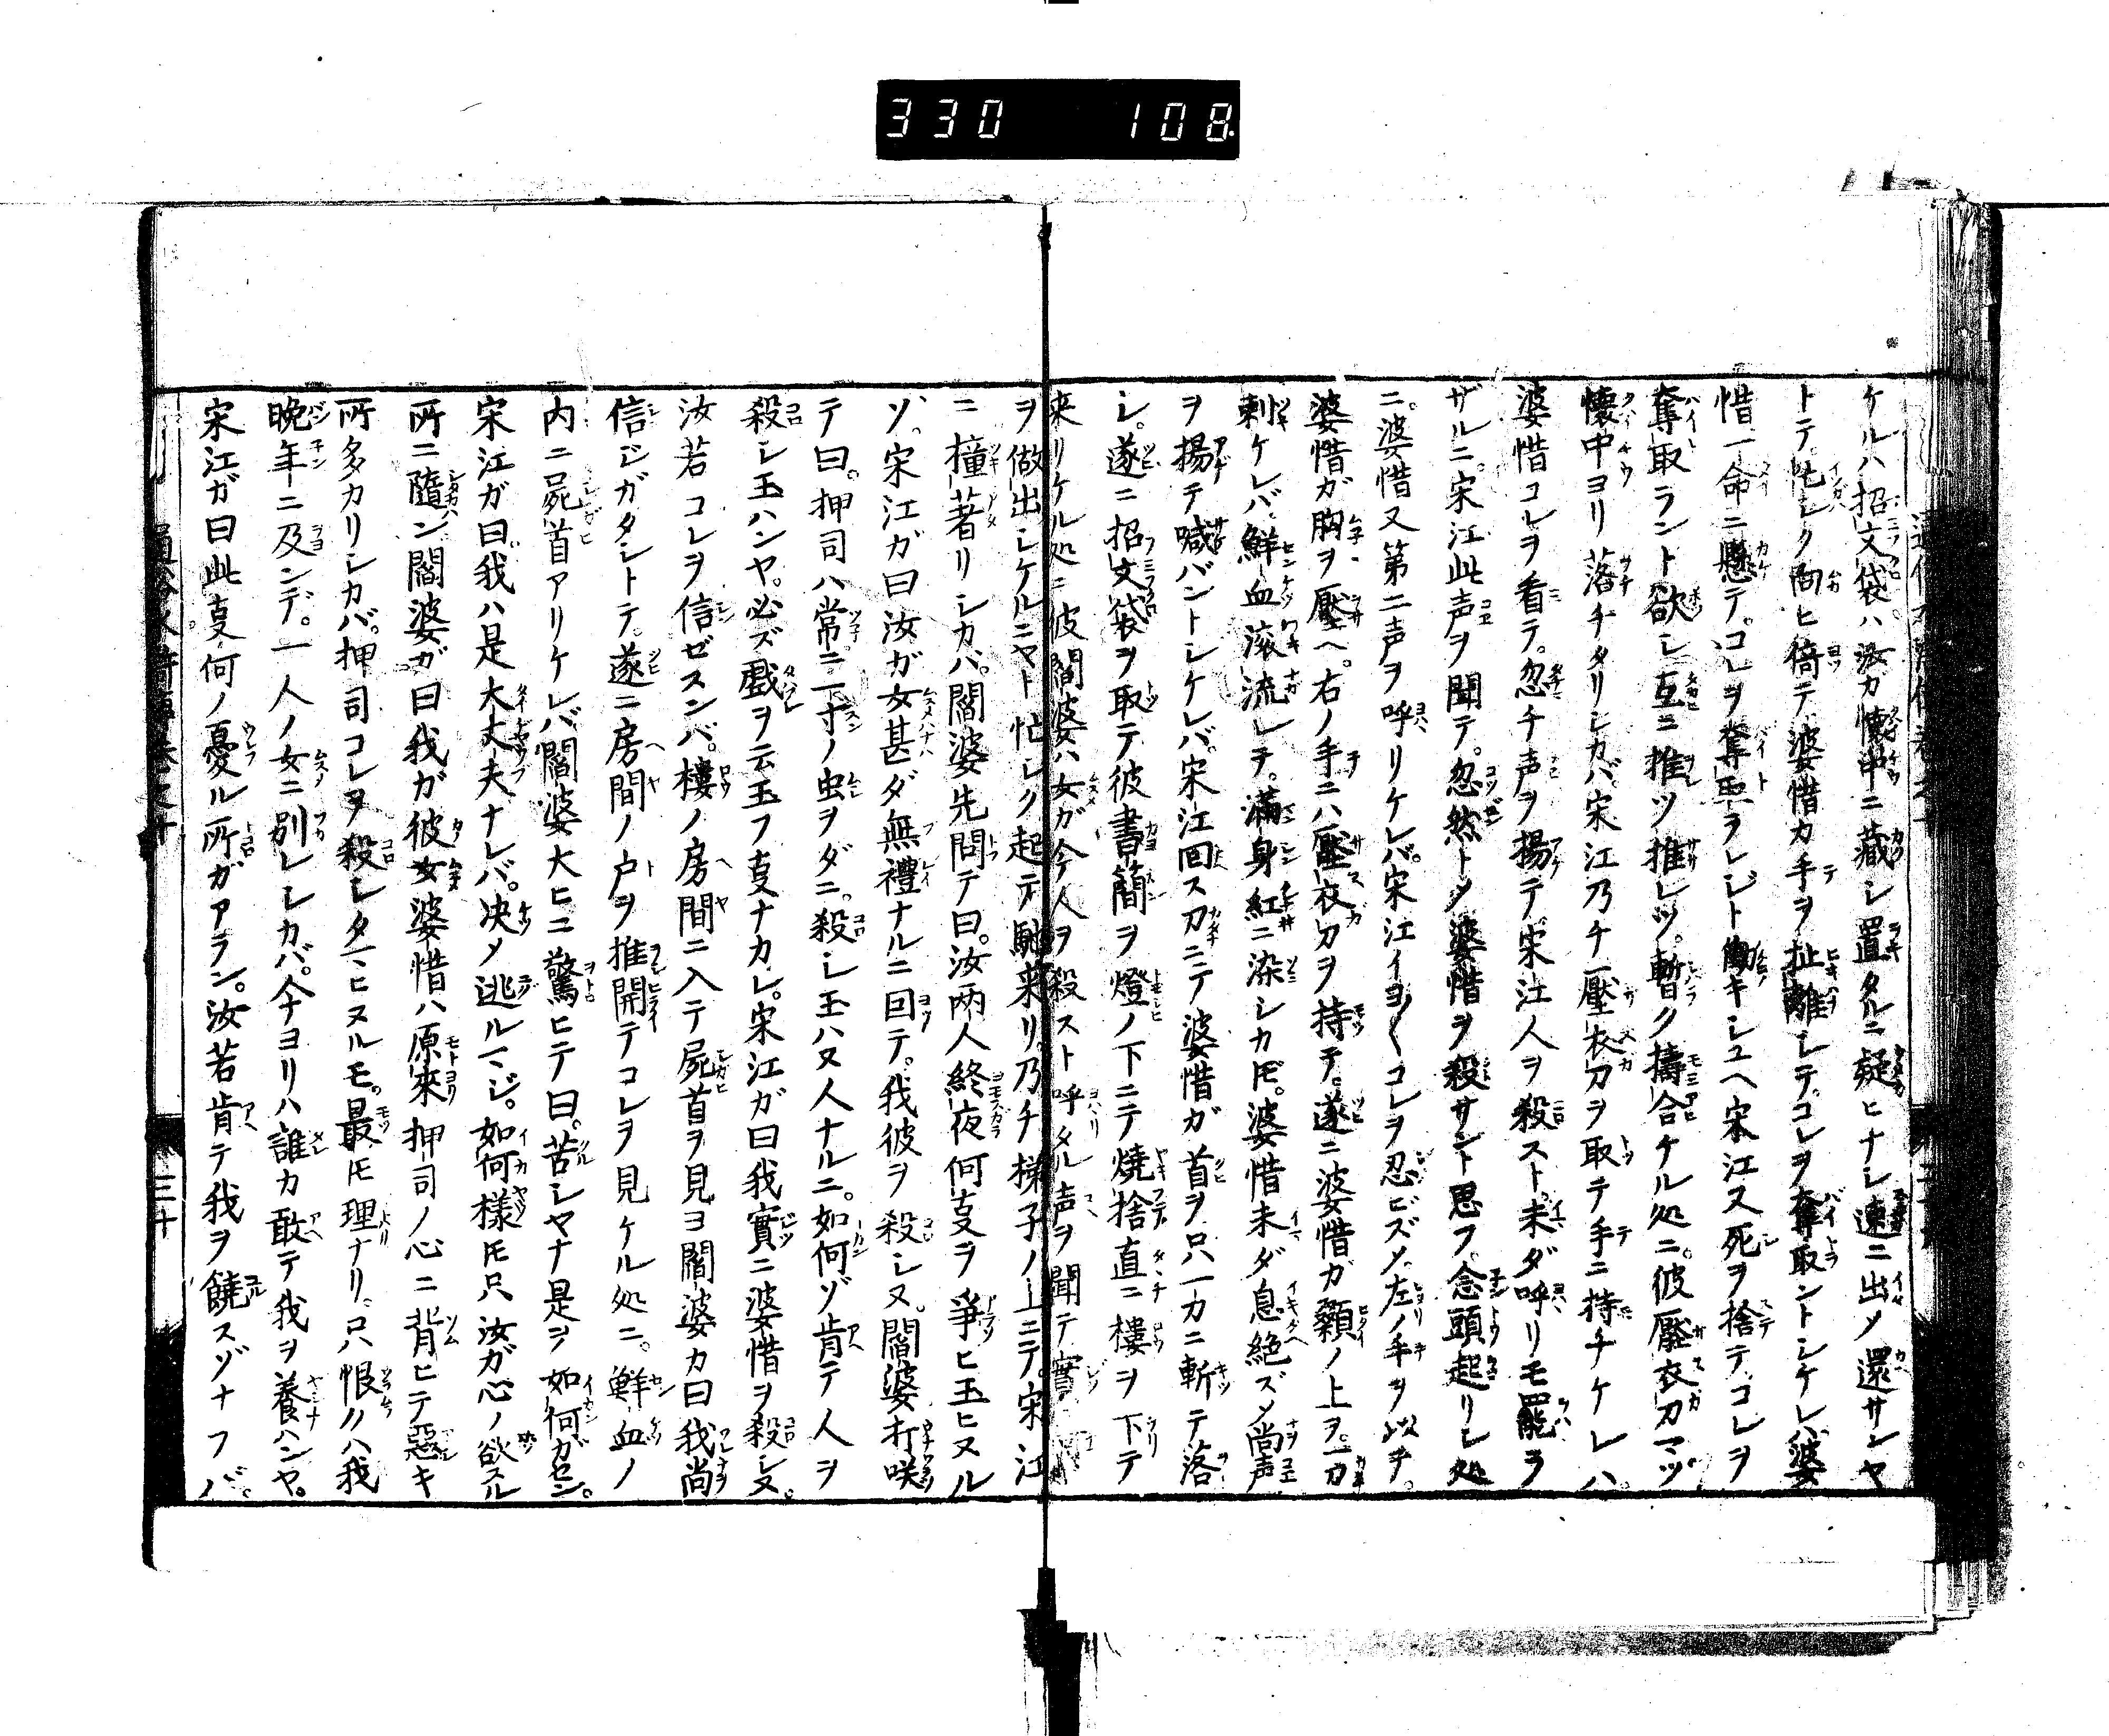 330 108
ケルハ招文袋ハ汝カ懐中ニ藏シ置タルニ疑ヒナシ速ニ出メ還サンヤ
トテ忙シク向ヒ倚テ婆惜カ手ヲ扯離シテコレヲ奪取ントシケレバ婆
惜一命ニ懸テコレヲ奪取ラレジト働キシユヘ宋江ス死ヲ捨テコレヲ
奪取ラント欲シ互ニ推ツ推レツ暫ク擣合ケル処ニ彼壓衣刀一ツ
懐中ヨリ落チタリシカバ宋江乃チ壓衣刀ヲ取テ手ニ持チケレハ
婆惜コレヲ看テ忽チ声ヲ揚テ宋江人ヲ殺スト未ダ呼リモ罷ラ
ザルニ宋江此声ヲ聞テ忽然トメ婆惜ヲ殺サント思フ念頭起リシ処
ニ婆惜又第二声ヲ呼リケレバ宋江イヨ〱コレヲ忍ビズメ左ノ手ヲ以テ
婆惜ガ胸ヲ壓ヘ右ノ手ニハ壓衣刀ヲ持テ遂ニ婆惜カ顙ノ上ヲ一刀
刺ケレバ鮮血滚流レテ滿身紅ニ染シカ𪜈婆惜未ダ息絶ズメ尚声
ヲ揚テ喊バントシケレバ宋江回ス刀ニテ婆惜ガ首ヲ只一刀ニ斬テ落
シ遂ニ招文袋ヲ取テ彼書簡ヲ燈ノ下ニテ燒捨直ニ樓ヲ下テ
来リケル処ニ彼閻婆ハ女ガ今人ヲ殺スト呼タル声ヲ聞テ實
ヲ做出シケルニヤト忙シク起テ馳来リ乃チ梯子ノ上ニテ宋江
ニ撞著リシカバ閻婆先問テ曰汝兩人終夜何㕝ヲ爭ヒ玉ヒヌル
ゾ宋江ガ曰汝ガ女甚ダ無禮ナルニ回テ我彼ヲ殺シヌ閻婆打咲
テ曰押司ハ常ニ一寸ノ虫ヲダニ殺シ玉ハヌ人ナルニ如何ゾ肯テ人ヲ
殺シ玉ハンヤ必ズ戲ヲ云玉フ㕝ナカレ宋江ガ曰我實ニ婆惜ヲ殺シヌ
汝若コレヲ信ゼスンバ樓ノ房間ニ入テ屍首ヲ見ヨ閻婆カ曰我尚
信ジガタシトテ遂ニ房間ノ戸ヲ推開テコレヲ見ケル処ニ鮮血ノ
内ニ屍首アリケレバ閻婆大ヒニ驚ヒテ曰苦シヤナ是ヲ如何ガセン
宋江ガ曰我ハ是大丈夫ナレバ决メ逃ルヿジ如何樣𪜈只汝ガ心ノ欲スル
所ニ隨ン閻婆ガ曰我ガ彼女婆惜ハ原來押司ノ心ニ背ヒテ惡キ
所多カリシカバ押司コレヲ殺シタマヒヌルモ最𪜈理ナリ只恨クハ我
晩年ニ及ンデ一人ノ女ニ別レシカバ今ヨリハ誰カ敢テ我ヲ養ハンヤ
宋江ガ曰此㕝何ノ憂ル所ガアラン汝若肯テ我ヲ饒スゾナラバ
三十